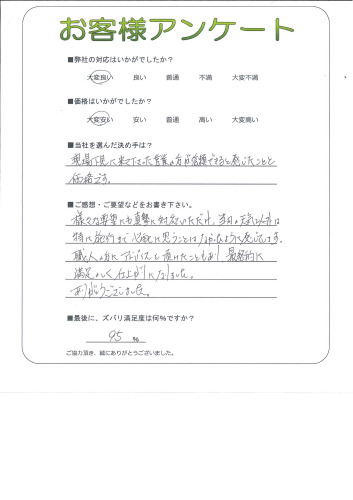 お客様アンケート
■弊社の対応はいかがでしたか?
大変良い 良い 普通 不満 大変不満
■価格はいかがでしたか?
大変安い 安い 普通 高い 大変高い
■当社を選んだ決め手は?
現場下見に来て下さった営業の方が信頼できると感じたことと
価格です。
■ご感想・ご要望などをお書き下さい。
様々な要望にも真摯に対応いただけ、当日の天気以外は
特に施術まで 心配に思うことはなかったように感じています。
職人の方にアドバイスして頂けたこともあり、最終的に
満足のいく仕上がりになりました。
ありがとうございました。
■最後に、ズバリ満足度は何%ですか?
95 %
ご協力頂き、誠にありがとうございました。